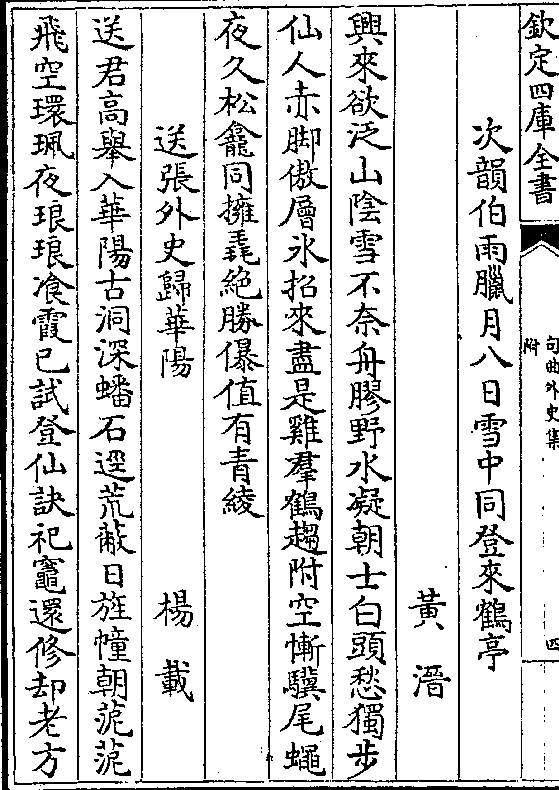 欽定四庫全書
句曲外史集
附
四
次韻伯雨臘月八日雪中同登來鶴亭
黃溍
興來欲泛山陰雪不奈舟膠野水凝朝士白頭愁獨步
仙人赤脚傲層氷招來盡是雞羣鶴趨附空慚驥尾蠅
夜久松龕同擁毳絶勝儤值有青綾
送張外史歸華陽
楊載
送君高舉入華陽古洞深蟠石逕荒蔽日旌幢朝萢萢
飛空環珮夜琅琅飡霞已試登仙訣祀竈還修却老方